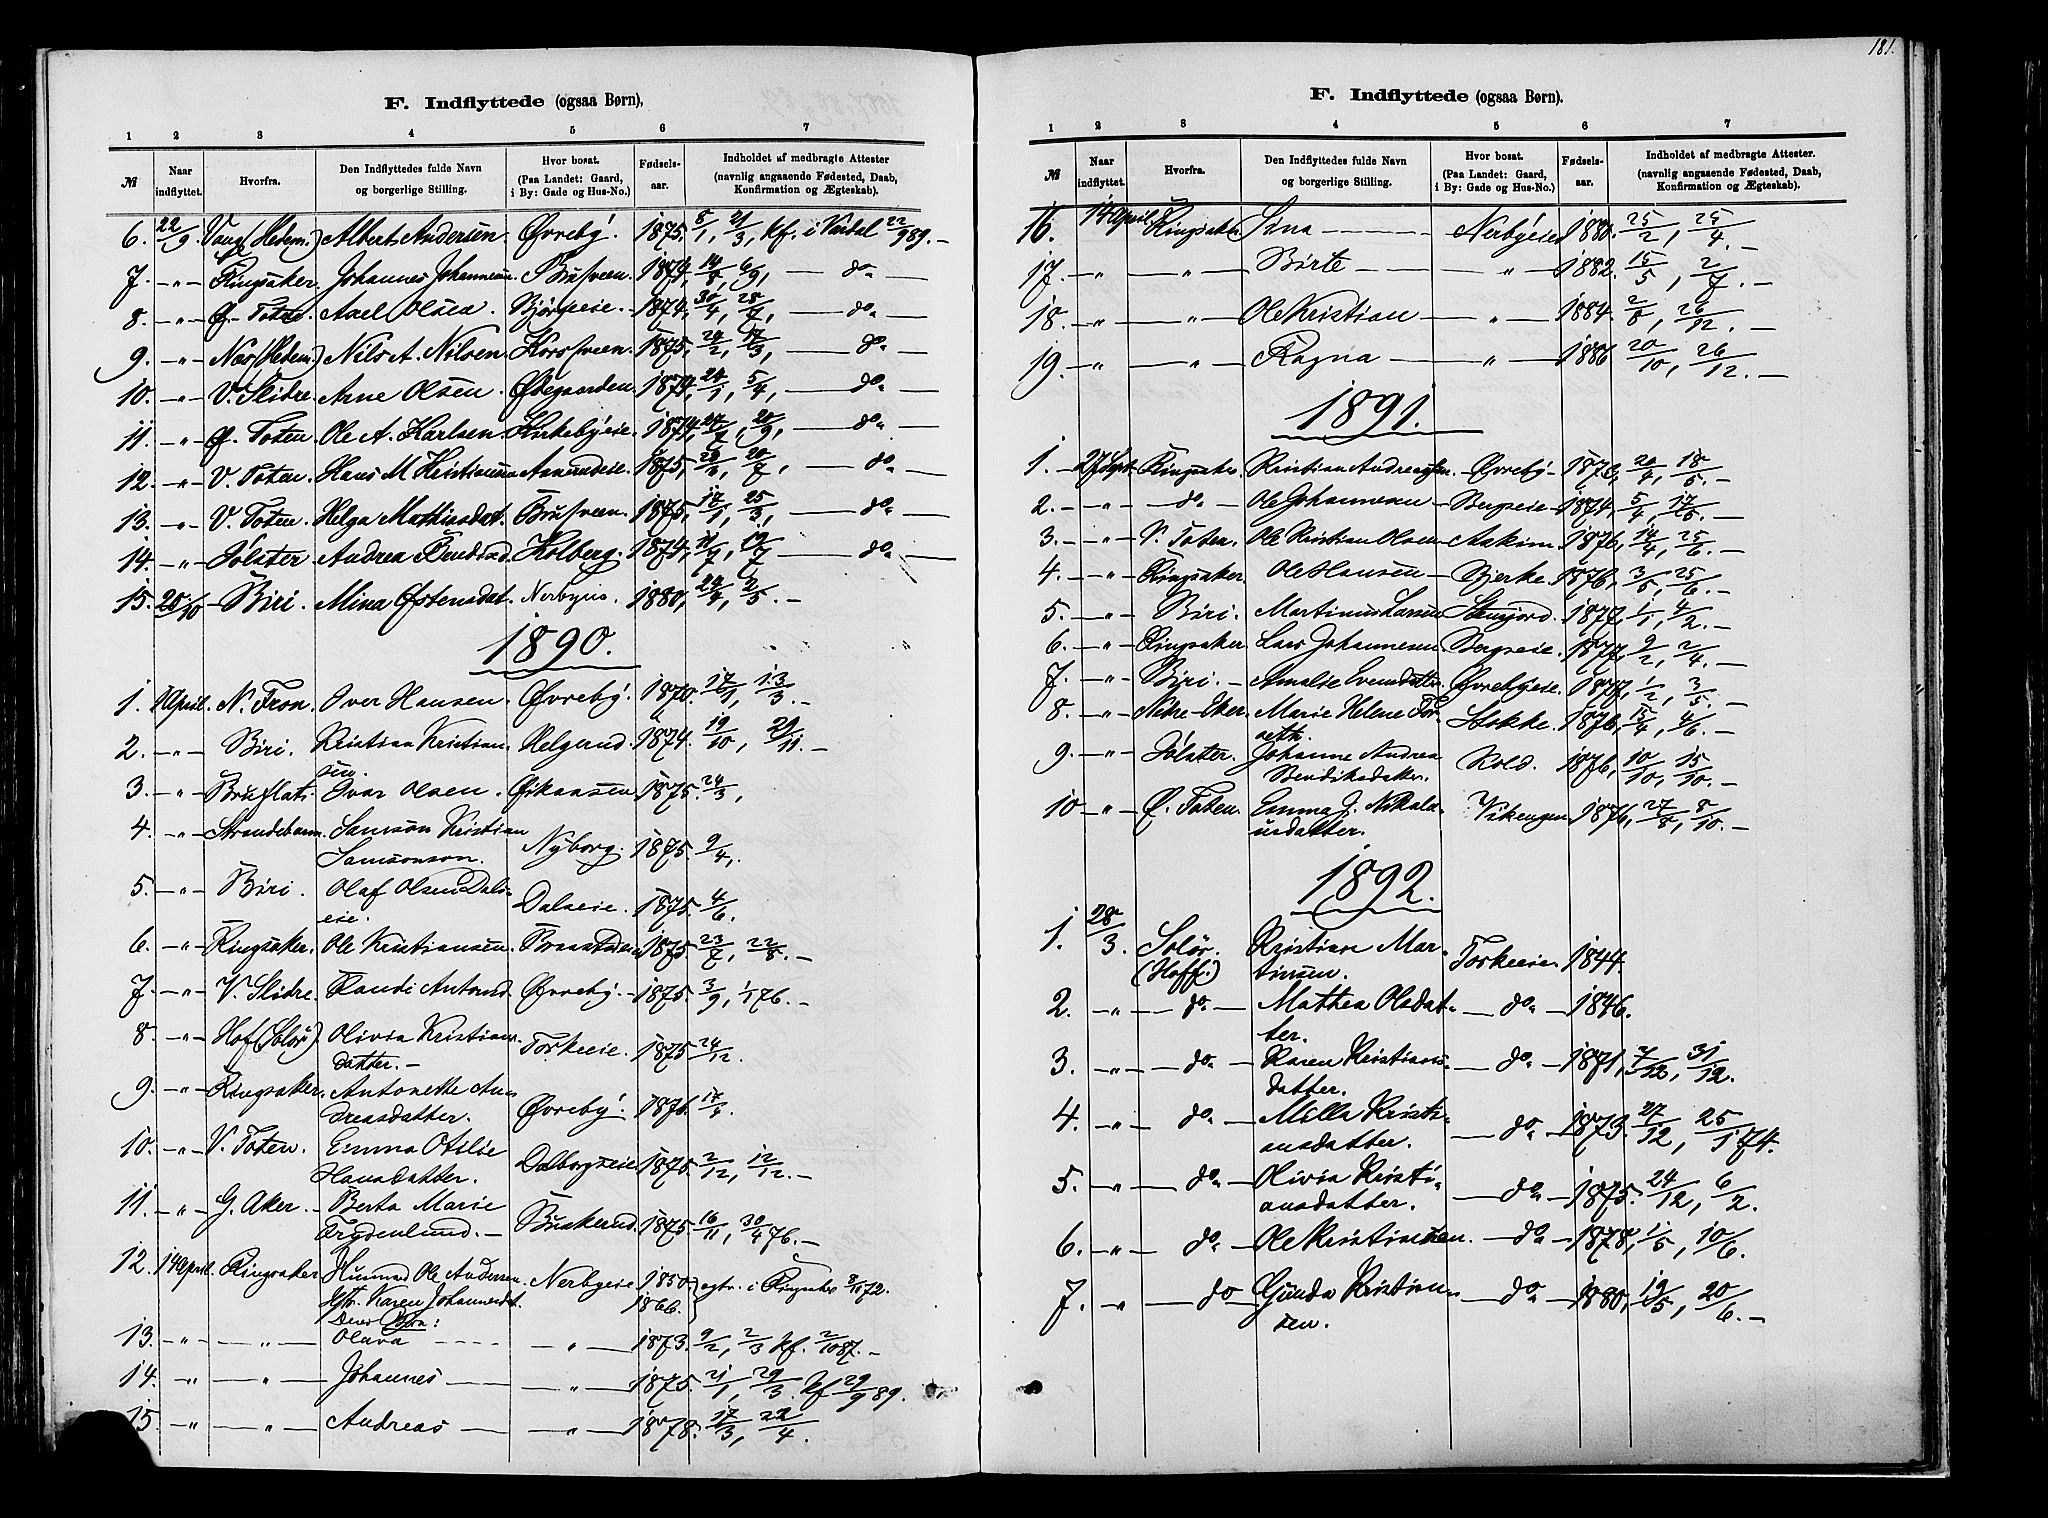 F. Indflyttede (ogsaa Børn),
1 2 3 4 5 6 7
№ Naar indflyttet. Hvorfra. Den Indflyttedes fulde Navn og borgerlige Stilling. Hvor bosat. (Paa Landet: Gaard, i By: Gade og Hus-No.) Fødsels-aar. Indholdet af medbragte Attester (navnlig angaaende Fødested, Daab, Konfirmation og Ægteskab).
6. 22/9. Vang (Hedem.) Albert Andersen. Øvreby. 1875. 8/1, 21/3, kf. i Vardal 22/9 89. —
7. — " — Ringsaker. Johannes Johannesen. Brusveen. 1874, 14/8, 6/9, — do — 
8. — " — Ø. Toten. Axel Olsen. Bjørgeeie. 1874, 30/4, 28/7, — do —
9. — " — Næs (Hedem.) Nils A. Nilsen. Korsveen. 1875, 24/2, 17/3, — do —
10. — " — V. Slidre. Arne Olsen. Ødegaarden. 1874, 24/1, 5/4, — do —
11. — " — Ø. Toten. Ole A. Karlsen. Kirkebyeie. 1874, 27/7, 20/9, — do —
12. — " — V. Toten. Hans M. Kristiansen 1875, 20/7, — do —
13. — " — V. Toten. Helga Mathisdat. Brusveen. 1875, 17/1, 25/3, — do —
14. — " — Jølster. Andrea Bendiksd. Kolberg. 1874, 11/7, 19/7 — do —
15. 20/10 Biri. Mina Østensdat. Nerbyeie. 1880, 24/4, 2/5. —
1890.
1. 1 April. N. Fron. Iver Hansen. Øvreby. 1870. 17/1, 13/3. —
2. — " — Biri. Kristian Kristian-
sen. Helgerud. 1874. 19/10, 29/11. —
3. — " — Bruflat. Ivar Olsen. 1875. 24/3,
4. — " — Strandebarm. Samson Kristian
Samsonson. Nyborg. 1875. 9/4,
5. — " — Biri Olaf Olsen Dals-
eie. Dalseie. 1875. 4/6.
6. — " — Ringsaker. Ole Kristiansen. Braastadeie 1875. 23/7, 22/8. —
7. — " — V. Slidre. Randi Antonsd. Øvreby. 1875. 3/9, 1/1 76. —
8. — " — Hof (Solør). Olivia Kristians-
datter. — Torkeeie. 1875 24/12.
9. — " — Ringsaker. Antonette An-
dreasdatter. Øvreby. 1876. 17/4.
10. — " — V. Toten. Emma Otilie
Hansdatter. Dalborgseie. 1875. 2/12, 12/12. —
11. — " — G. Aker. — Berta Marie
Frydenlund. — Buskerud. 1875. 16/11, 30/4 76. —
12. 14 April. Ringsaker Husmd Ole Andersen Nerbyeie 1850 } egtv. i Ringsaker 8/11 72.
Hstr. Karen Johannesdt. 1866.
Deres Børn:
13. — " — " — Olava — — " — 1873. 9/2, 2/3 kf. 2/10 87. —
14. — " — " — Johannes — — " — 1875. 21/1, 29/3. kf 29/9 89.
15. — " — " — Andreas — — " — 1878. 17/3, 22/4.
181.
F. Indflyttede (ogsaa Børn).
1 2 3 4 5 6 7
№ Naar indflyttet. Hvorfra. Den Indflyttedes fulde Navn og borgerlige Stilling. Hvor bosat. (Paa Landet: Gaard, i By: Gade og Hus-No.) Fødsels-aar. Indholdet af medbragte Attester. (navnlig angaaende Fødested, Daab, Konfirmation og Ægteskab).
16. 14 April. Ringsaker Sina — Nerbyeie 1880. 25/2, 25/4. —
17. — " — " — Birte — " — 1882. 15/5, 2/7. —
18. — " — " — Ole Kristian — " — 1884. 2/8, 26/12. —
19. — " — " — Ragna — " — 1886 20/10, 26/12. —
1891.
1. — 27 Sept. Ringsaker. Kristian Andreassen. Øvreby. 20/4, 18/5. —
2. — " — do — Ole Johannesen — Bergseie — 1874, 5/4, 17/5. —
3. — " — V. Toten. Ole Kristian Olsen Askim. 1876, 14/4, 25/6. —
4. — " — Ringsaker. Ole Hansen — Bjerke. 1876, 3/5, 25/6. —
5. — " — Biri. Martinus Larsen 1877, 1/1, 4/2. —
6. — " — Ringsaker Lars Johannesen Bergseie. 1877, 9/2, 2/4. —
7. — " — Biri. — Amalie Evensdatter Øvrebyeie. 1877, 1/2, 3/5. —
8. — " — Nedre-Eker. Marie Helene Tor-
seth. Stokke. 1876, 15/4, 4/6. —
9. — " — Jølster. Johanne Andrea
Bendiksdatter. Kold. 1876, 10/10, 15/10. —
10 — " — Ø. Toten. Emma J. Nikola-
usdatter. Vikengen 1876, 27/8, 8/10. —
1892.
1. 28/3. Solør.
(Hoff.) Kristian Mar-
tinsen. Torkeeie. 1844.
2. — " — do — Mathea Olsdat-
ter. — do — 1846.
3. — " — do — Karen Kristians-
datter. — do — 1871, 7/12, 31/12.
4. — " — do — Milla Kristi-
ansdatter. — do — 1873. 27/12, 25/1 74.
5. — " — do — Olivia Kristi-
ansdatter. — do — 1875. 24/12, 6/2.
6. — " — do — Ole Kristiansen. — do — 1878, 1/5, 10/6.
7. — " — do — Gunda Kristian-
sen. — do — 1880, 19/5, 20/6. —